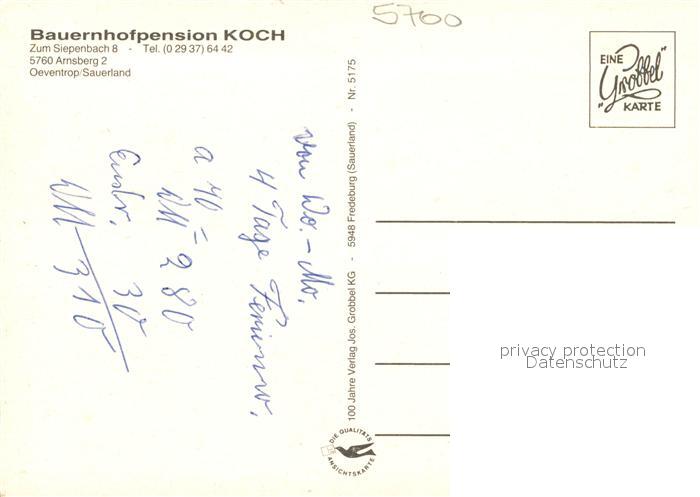 Bauernhofpension KOCH
Zum Siepenbach 8 - Tel. (0 29 37) 64 42
5760 Arnsberg 2
Oeventrop/Sauerland
5700
EINE
"Grobbel"
KARTE
von Do. - Mo.
4 Tage
a 40,-
DM 280
30
DM 310
100 Jahre Verlag Jos. Grobbel KG - 5948 Fredeburg (Sauerland) - Nr. 5175
DIE QUALITÄTS
ANSICHTSKARTE
privacy protection
Datenschutz